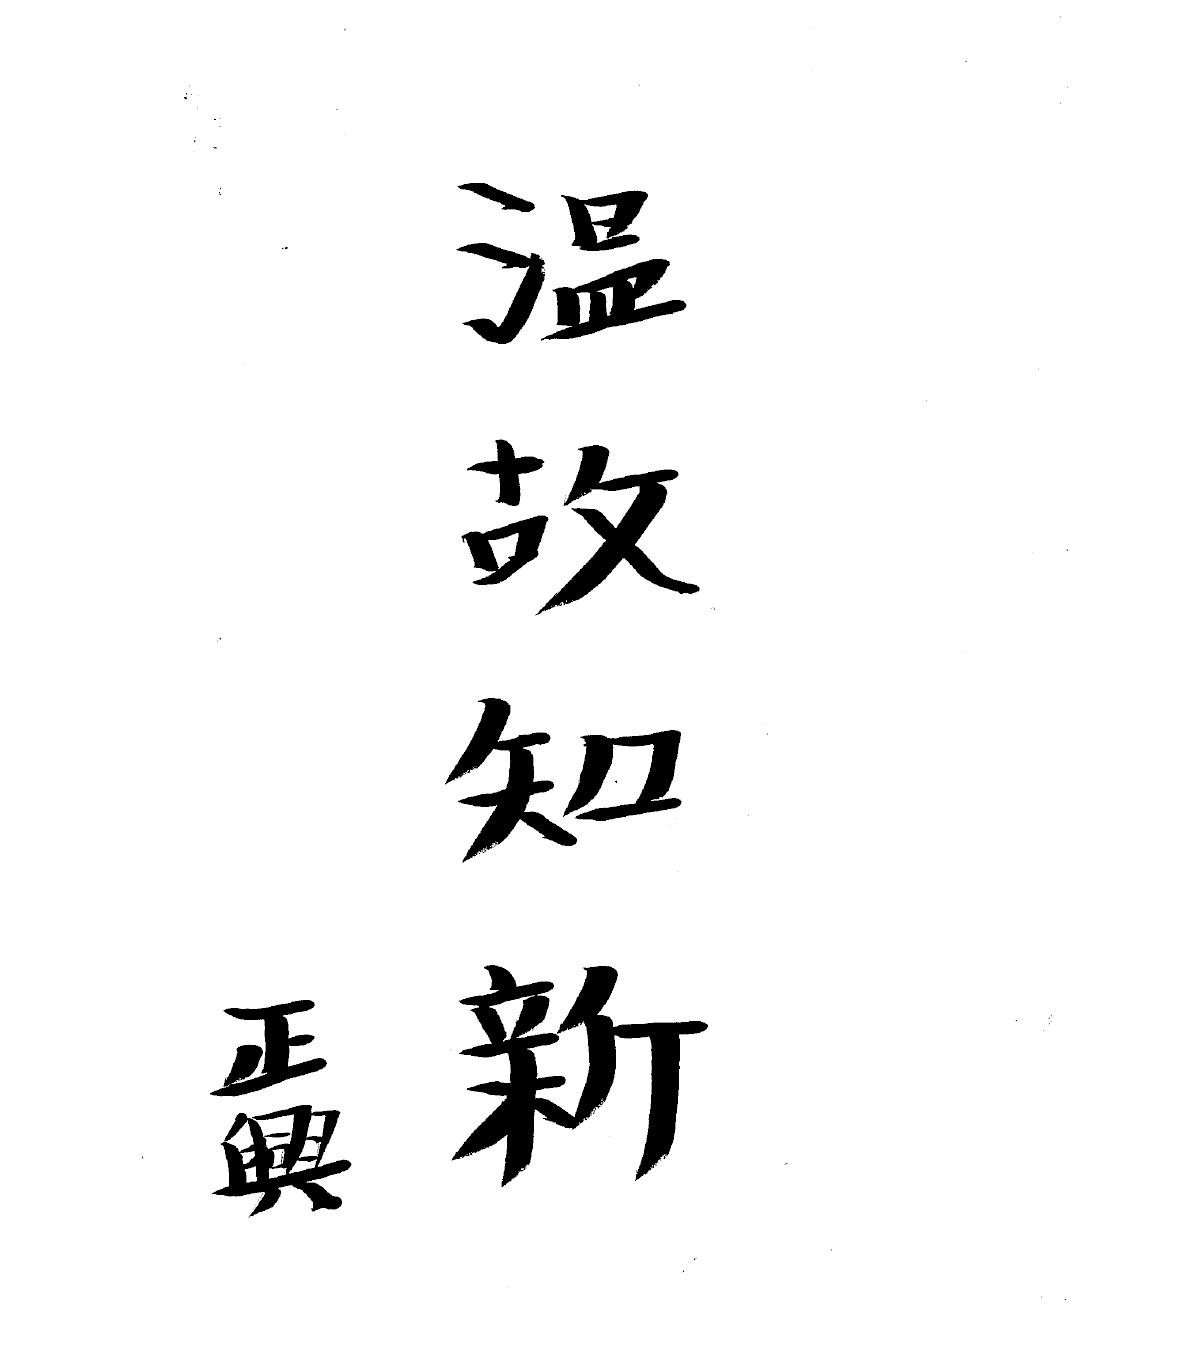 温故知新
正興